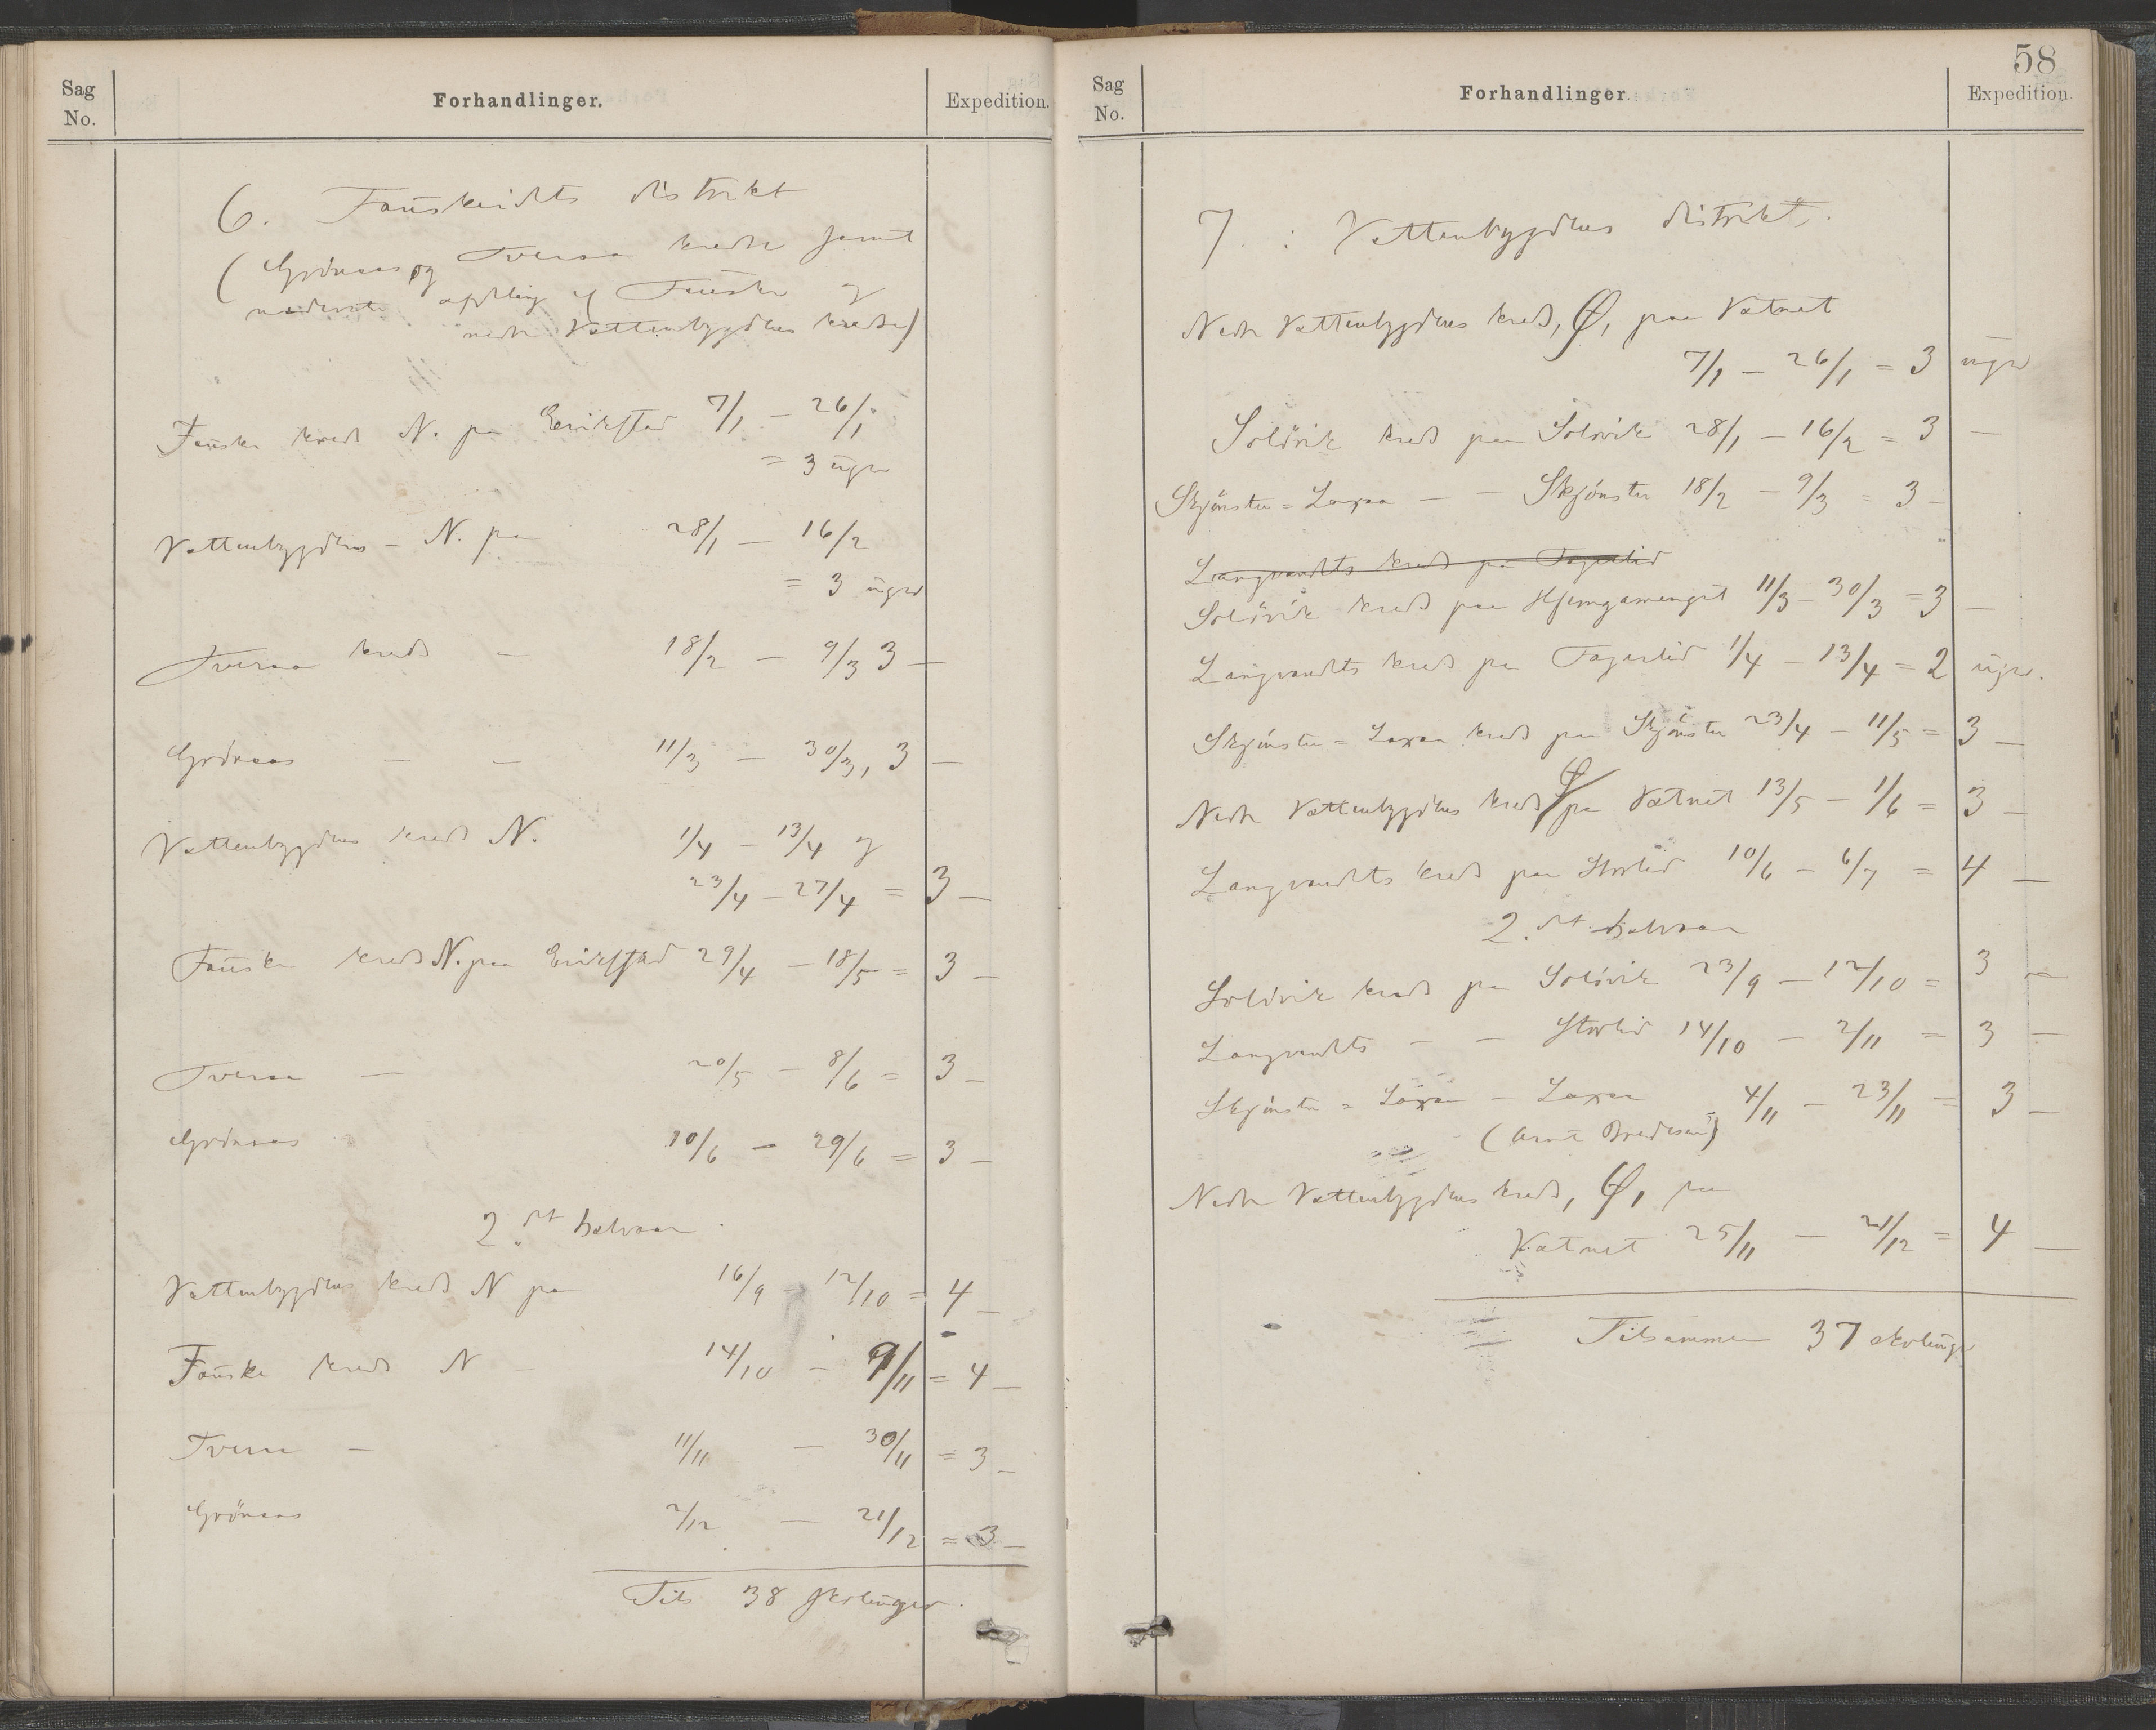 Sag No.
Forhandlinger.
Expedition.
6. Fauskeidets distrikt
(Grönaas og Tveraa kredse samt
nederste afdeling af Fauske og
nedre Vattenbygdens kredse)
Fauske kreds N. paa Erikstad 7/1 – 26/1
= 3 uger
Vattenbygdens – N. paa 28/1 – 16/2
= 3 uger
Tveraa kreds – 18/2 – 9/3 3 –
Grönaas – – 11/3 – 30/3, 3 –
Vattenbygdens kreds N. 1/4 – 13/4 og
23/4 – 27/4 = 3 –
Fauske kreds N. paa Erikstad 29/4 – 18/5 = 3 –
Tveraa – 20/5 – 8/6 = 3 –
Grönaas 10/6 – 29/6 = 3 –
2.det halvaar.
Vattenbygdens kreds N paa 16/9 – 12/10 = 4 –
Fauske kreds N – 14/10 – 9/11 = 4 –
Tveraa – 11/11 – 30/11 = 3 –
Grönaas 2/12 – 21/12 = 3 –
Tils 38 skoleuger.
58
Sag No.
Forhandlinger.
Expedition.
7. : Vattenbygdens distrikt.
Nedre Vattenbygdens kreds, Ø, paa Vatnet
7/1 – 26/1 = 3 uger
Solövik kreds paa Solövik 28/1 – 16/2 = 3 –
Skjönstu = Laxaa – – Skjönstu 18/2 – 9/3 = 3 –
Langvandets kreds paa Fagerlid
Solövik kreds paa Hjemgamenget 11/3 – 30/3 = 3 –
Langvandets kreds paa Fagerlid 1/4 – 13/4 = 2 uger.
Skjönstu = Laxaa kreds paa Skjönstu 23/4 – 11/5 = 3 –
Nedre Vattenbygdens kreds Ø paa Vatnet 13/5 – 1/6 = 3 –
Langvandets kreds paa Storlid 10/6 – 6/7 = 4 –
2.det halvaar
Solövik kreds paa Solövik 23/9 – 12/10 = 3 –
Langvandets – – Storlid 14/10 – 2/11 = 3 –
Skjönstu = Laxaa – Laxaa 4/11 – 23/11 = 3 –
(Arnt Bredesen)
Nedre Vattenbygdens kreds, Ø, paa
Vatnet 25/11 – 21/12 = 4 –
Tilsammen 37 skoleuger